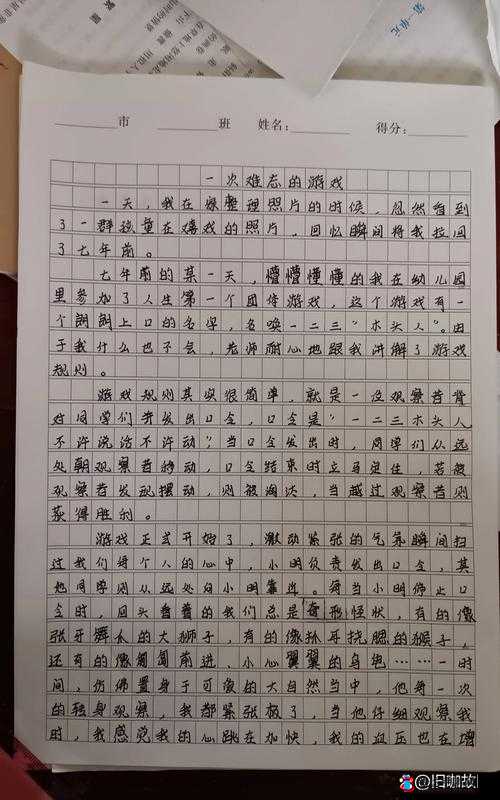 第一单元
市 班 姓名: 得分:
一次难忘的游戏
一天,我在家整理照片的时候,忽然看到
了一群孩童在嬉戏的照片,回忆瞬间将我拉回
了七年前。
七年前的某一天,懵懵懂懂的我在幼儿园
里参加了人生第一个团体游戏,这个游戏有一
个朗朗上口的名字,名唤一二三“木头人”。由
于我什么也不会,老师耐心地跟我讲解了游戏
规则。
游戏规则其实很简单,就是一位观察者背
对同学们并发出口令,口令是“一二三木头人
不许说话不许动”当口令发出时,同学们从远
处朝观察者移动,口令结束时立马定住,若被
观察者发现摆动,则被淘汰,当越过观察者则
获得胜利。
游戏正式开始了,激动紧张的气氛瞬间扫
过我们每个人的心中,小明负责发出口令,其
他同学则从远处向小明靠近。每当小明停止口
令时,回头看着的我们总是奇形怪状,有的像
张牙舞爪的大狮子,有的像抓耳挠腮的猴子,
还有的像匍匐前进、小心翼翼的乌龟……一时
间,仿佛置身于可爱的大自然当中,他每一次
的转身观察,我都紧张极了,当他仔细观察我
时,我感觉我的心跳在加快,我的血压也在增
@旧咖故